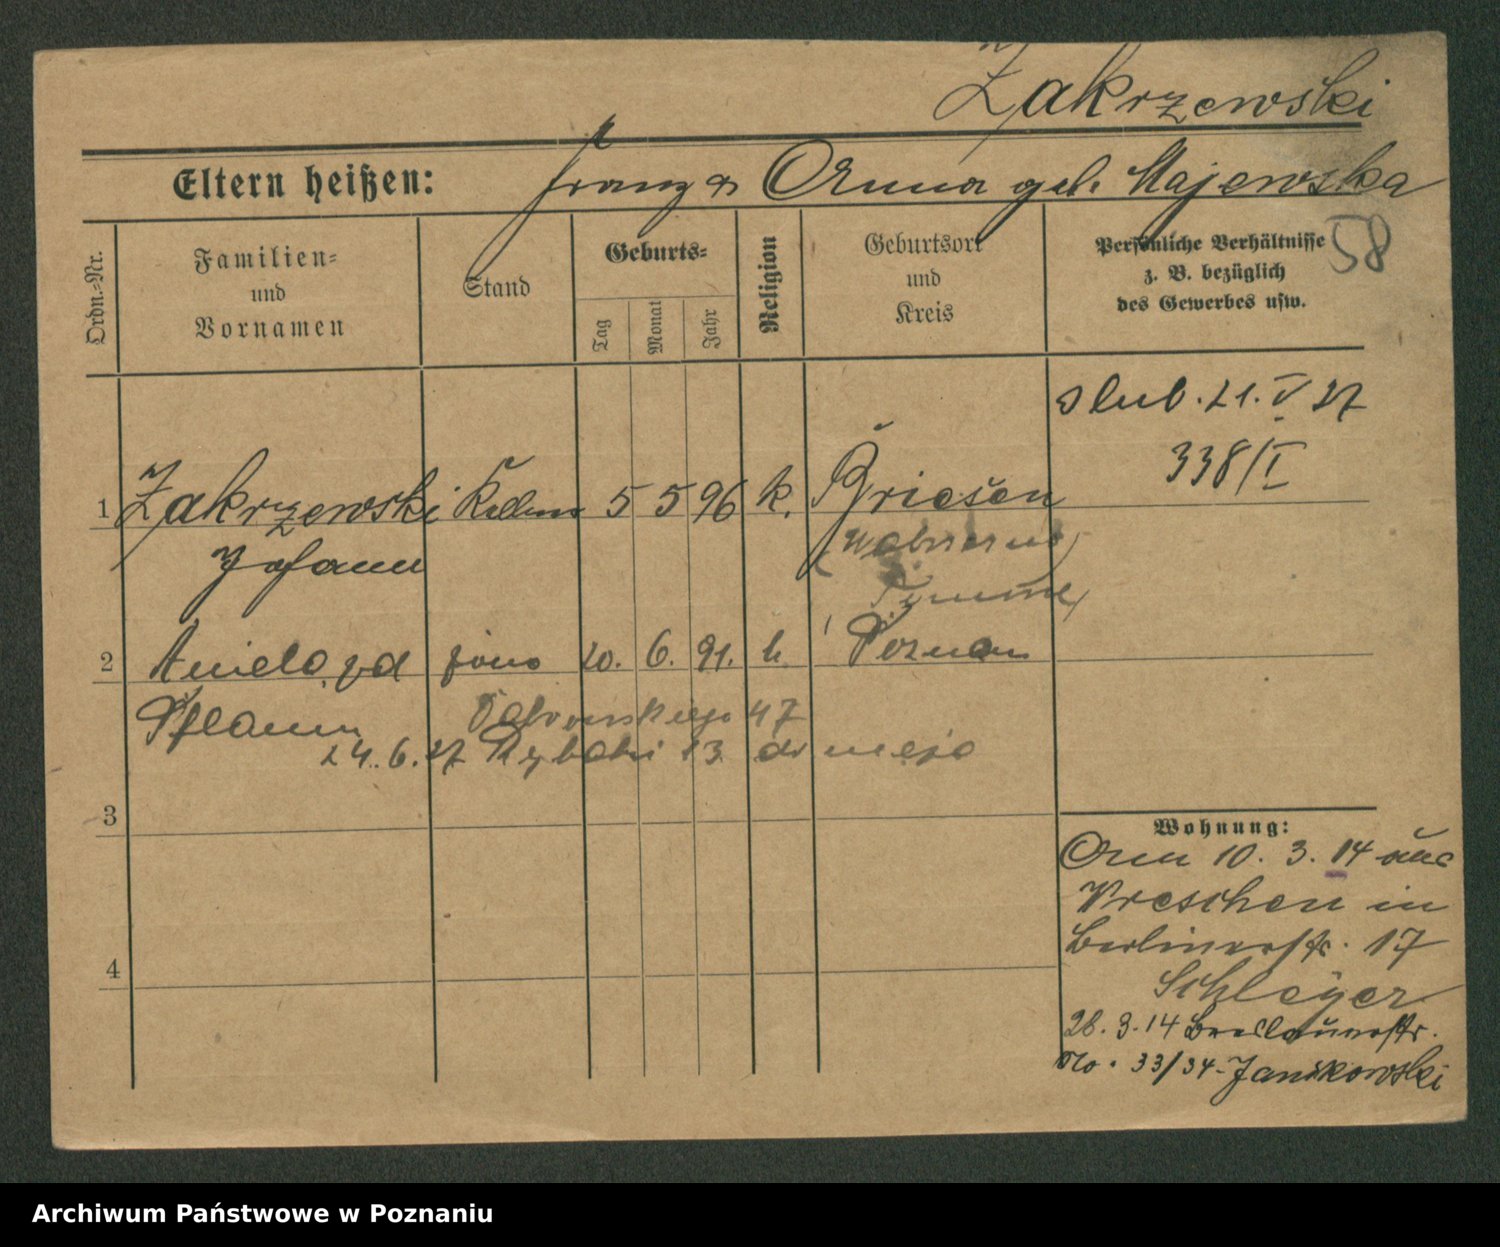 Zakrzewski
Eltern heißen: Franz & Anna geb. Majewska
58
Ordn.-Nr.
Familien-
und
Vornamen
Stand
Geburts-
Tag
Monat
Jahr
Religion
Geburtsort
und
Kreis
Persönliche Verhältnisse
z. B. bezüglich
des Gewerbes usw.
slub. 21. V 27
338/I
1 Zakrzewski Kelln. 5 5 96 k. Briesen
Johann
2 Aniela zd żona 20. 6. 91. k. Poznan
Pflaum
Dąbrowskiego 47
24. 6. 27 Rybaki 13
3
4
Wohnung:
Am 10. 3. 14 aus
Wreschen in
Berlinerstr. 17
Schleyer
28. 3. 14 Breslauerstr.
No. 33/34 - Janikowski
Archiwum Państwowe w Poznaniu